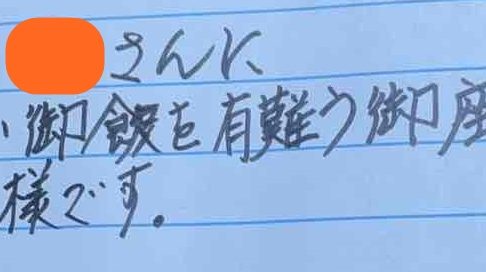 さんに
御飯を有難う御座
様です。